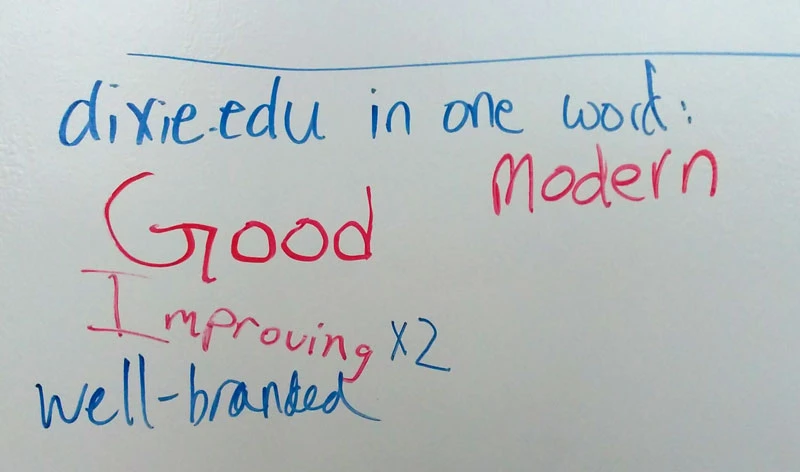 dixie.edu in one word:
Modern
Good
Improving x2
well-branded